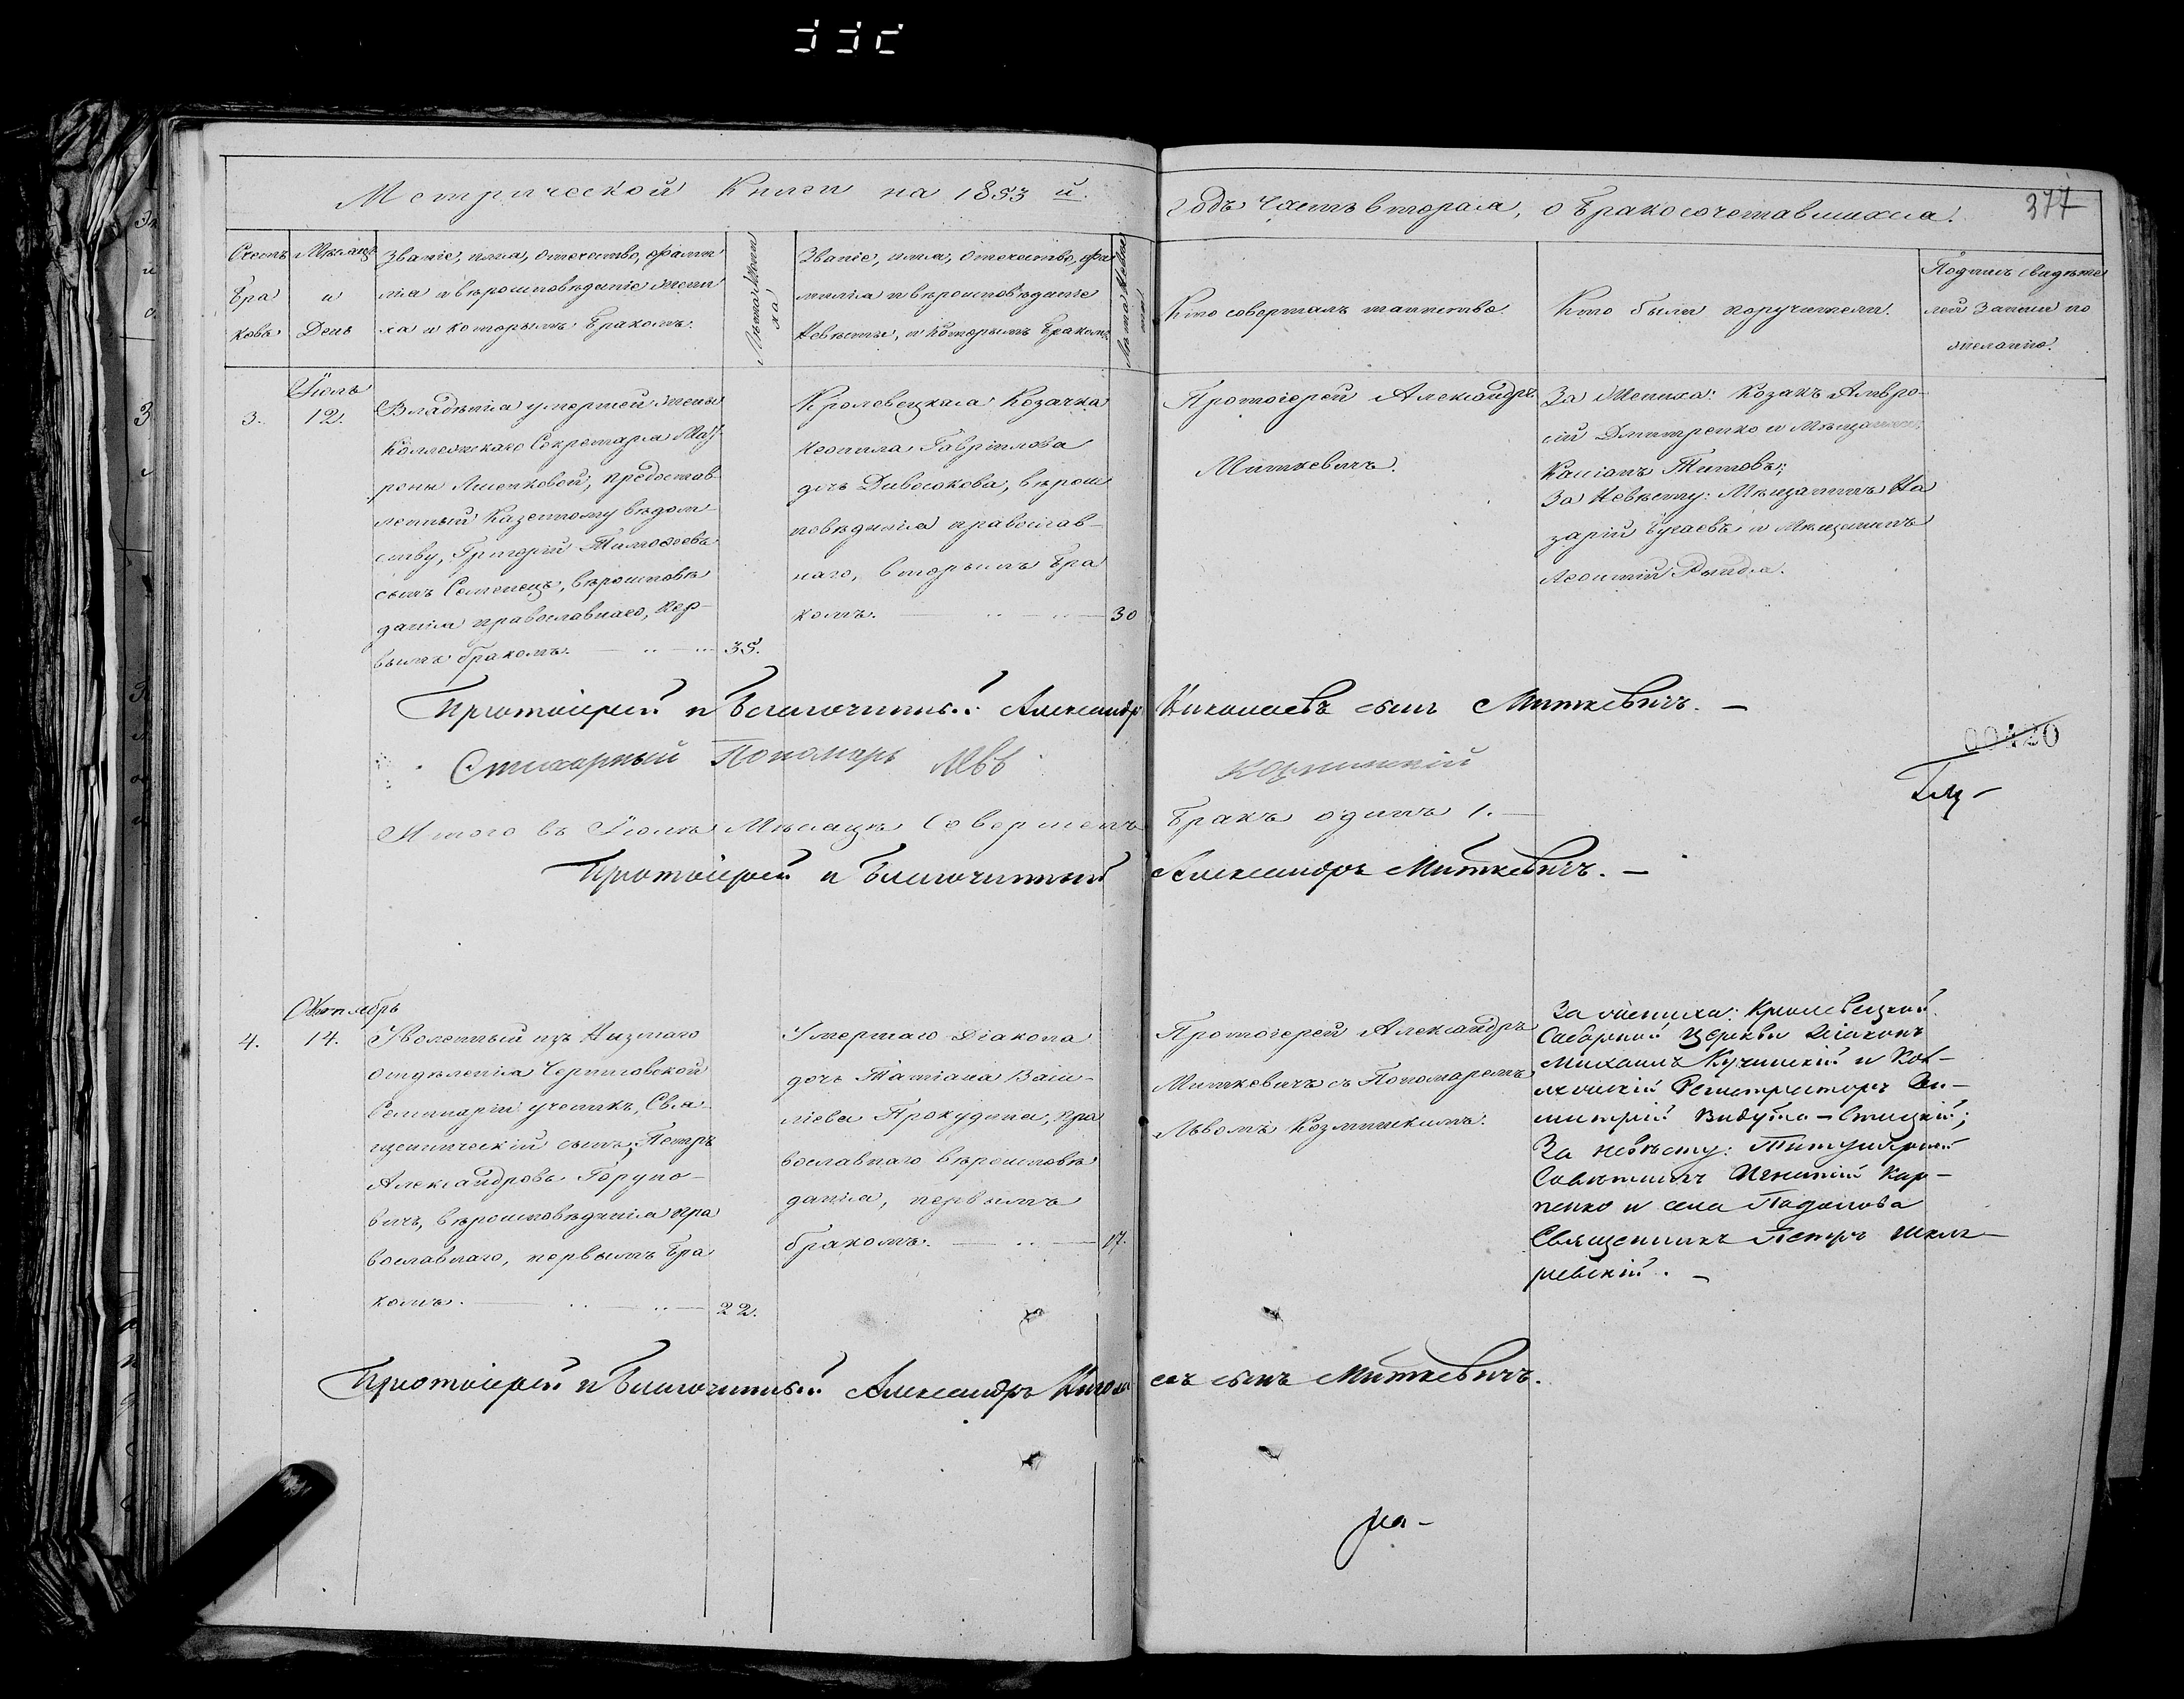 Метрической Книги на 1853 й.
годъ Часть вторая, о бракосочетавшихся.
377
Счетъ браковъ
Мѣсяцъ и День
Званіе, имя, отечество, фами
лія и вѣроисповѣданіе жени
ха и которымъ бракомъ.
Лѣта жени
ха
Званіе, имя, отечество, фа
милія и вѣроисповѣданіе
Невѣсты, и которымъ бракомъ.
Лѣта Невѣс
ты
Кто совершалъ таинство.
Кто были поручители.
Подпись свидѣте
лей записи по
желанію.
3.
Іюль
12.
Владѣнія умершей жены
Коллежскаго Секретаря Мат
роны Лисенковой, предостав
ленный Казенному вѣдом-
ству, Григорій Тимофеевъ
сынъ Семенецъ, вѣроисповѣ
данія православнаго, пер-
вымъ бракомъ.
35.
Кролевецкая Козачка
Неонила Гаврілова
дочь Дивосокова, вѣрои
повѣданія православ-
наго, вторымъ бра
комъ.
30
Протоіерей Александръ
Миткевичъ.
За Жениха: Козакъ Амвро-
сій Дмитренко и Мѣщанинъ
Касіанъ Титовъ;
За Невѣсту: Мѣщанинъ На
зарій Бугаевъ и Мѣщанинъ
Леонтій Рындя.
Протоіерей и Благочинный Александръ Николаевъ сынъ Миткевичъ. —
Стихарный Пономарь Левъ Козминскій
00420
Итого въ Іюлѣ Мѣсяцѣ Совершенъ бракъ одинъ 1. —
Протоіерей и Благочинный Александръ Миткевичъ. —
4.
Октябрь
14.
Уволенный изъ Низшаго
отдѣленія Черниговской
Семинаріи ученикъ, Свя-
щенническій сынъ, Петръ
Александровъ Горуно-
вичъ, вѣроисповѣданія пра
вославнаго, первымъ бра
комъ.
22.
Умершаго Діакона
дочь Татіана Васи-
ліева Прокудина, пра
вославнаго вѣроисповѣ
данія, первымъ
бракомъ.
17.
Протоіерей Александръ
Миткевичъ съ Пономаремъ
Львомъ Козминскимъ.
За жениха: Кролевецкой
Соборной Церкви Діаконъ
Михаилъ Кучинскій и Кол-
лежскій Регистраторъ Ди-
митрій Видута-Стицкій;
За невѣсту: Титулярный
Совѣтникъ Игнатій Кар-
пенко и села Подолова
Священникъ Петръ
Протоіерей и Благочинный Александръ Николаевъ сынъ Миткевичъ.